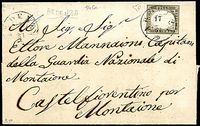 Al Sig. Sig.
Ettore Mannaioni Capitano
della Guardia Nazionale di
Montaione
Castel fiorentino per
Montaione